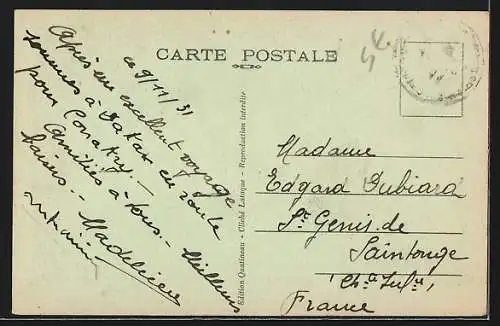 CARTE POSTALE
ce 9/11/31
Après un excellent voyage
sommes à Dakar en route
pour Conakry. —
Amitiés à tous. — Meilleurs
baisers. — Madeleine
Edition Quatineau - Cliché Lataque - Reproduction Interdite
Madame
Edgard Dubiard
St Genis de
Saintonge
(Chte Infre)
France